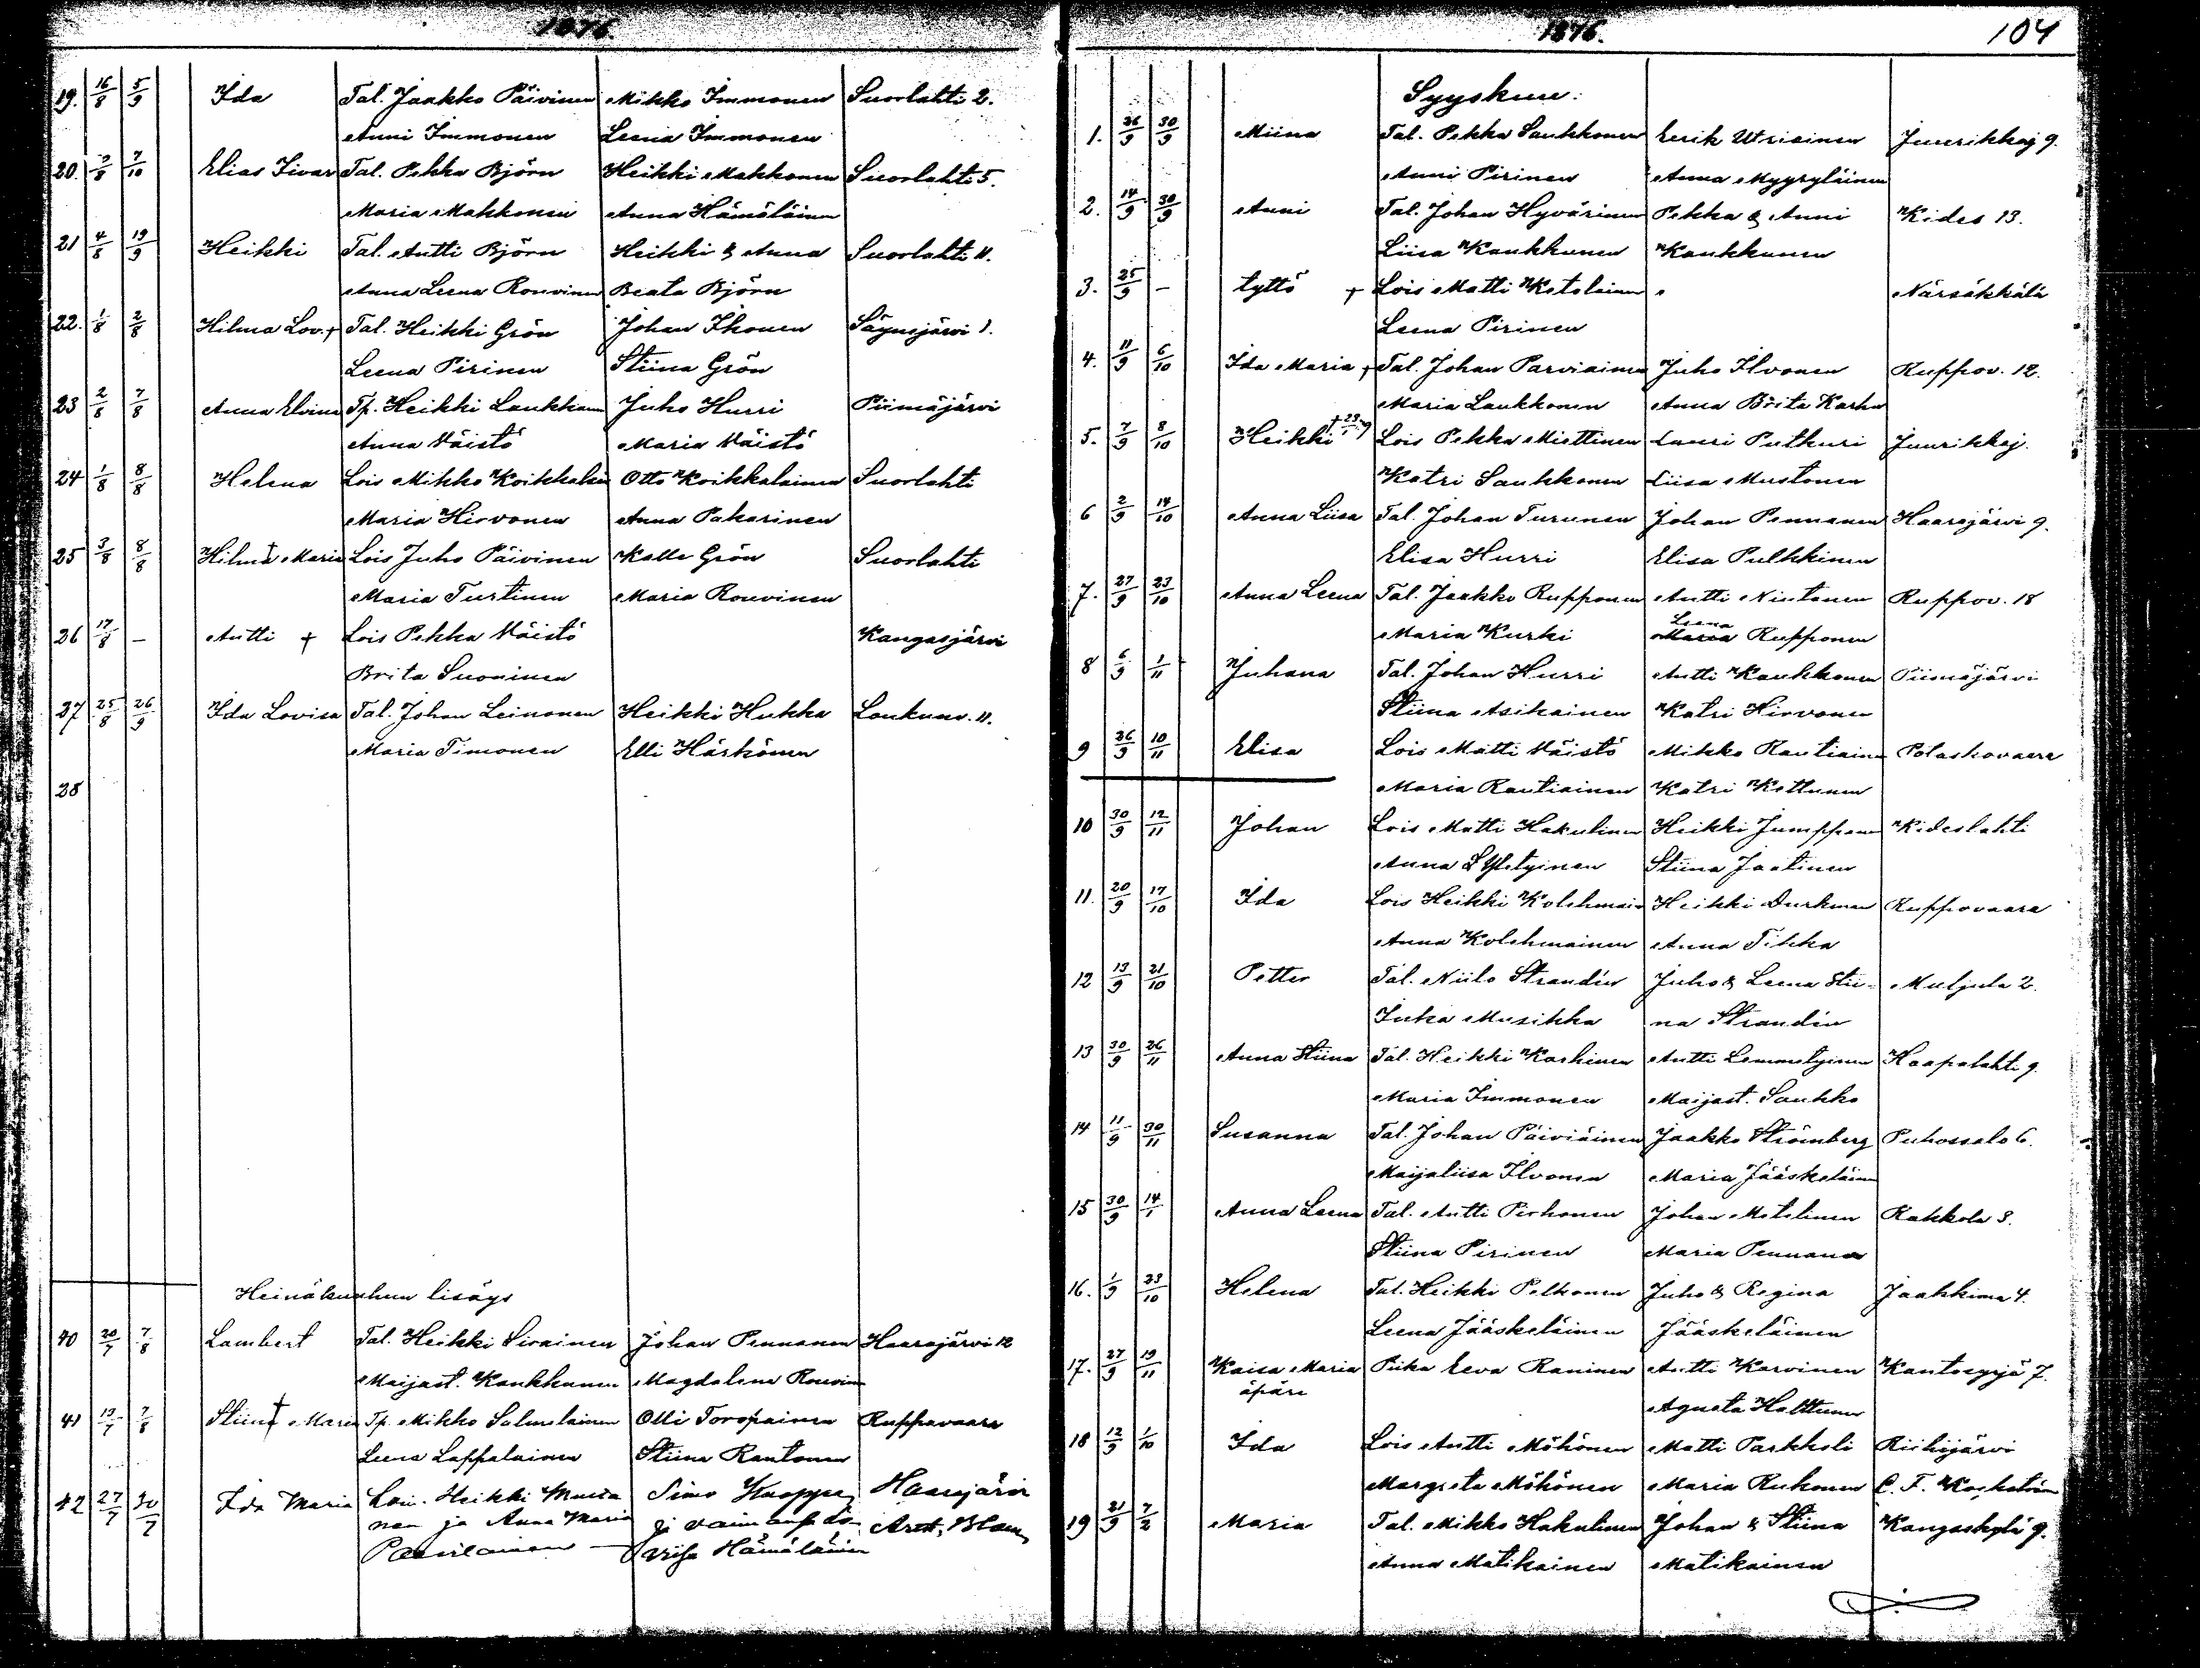 1876.
19. 16/8 5/9 Ida Tal. Jaakko Päivinen Mikko Immonen Suorlahti 2.
Anni Immonen Leena Immonen
20. 7/8 7/10 Elias Iivar Tal. Pekka Björn Heikki Makkonen Suorlahti 5.
Maria Makkonen Anna Hämäläinen
21 4/8 19/9 Heikki Tal. Antti Björn Heikki & Anna Suorlahti 11.
Anna Leena Rouvinen Beata Björn
22. 1/8 2/8 Hilma Lov. + Tal. Heikki Grön Johan Ikonen Säynejärvi 1.
Leena Pirinen Stiina Grön
23 2/8 7/8 Anna Elvina Tp. Heikki Laukkanen Juho Hurri Piimäjärvi
Anna Väistö Maria Väistö
24 1/8 8/8 Helena Lois Mikko Koikkalain Otto Koikkalainen Suorlahti
Maria Hirvonen Anna Pakarinen
25 3/8 8/8 Hilma + Maria Lois Juho Päivinen Kalle Grön Suorlahti
Maria Turtinen Maria Rouvinen
26 17/8 – Antti + Lois Pekka Väistö Kangasjärvi
Brita Suoninen
27 25/8 26/9 Ida Lovisa Tal. Johan Leinonen Heikki Hukka Loukunv. 11.
Maria Timonen Elli Härkönen
28
Heinäkuuhun lisäys
40 20/7 7/8 Lambert Tal. Heikki Sivainen Johan Pennanen Haarajärvi 12
Maijast. Kaukkunen Magdalena Rouvin
41 19/7 7/8 Stiina + Maria Tp. Mikko Salmelainen Olli Toropainen Ruppovaara
Leena Lappalainen Stiina Rautanen
42 27/7 30/7 Ida Maria Lois. Heikki Musta Simo Haarajärvi
nen ja Anna Maria ja vaimonsa Lo
visa Hämäläinen
1876. 104
Syyskuu:
1. 26/9 30/9 Miina Tal. Pekka Saukkonen Eerik Utriainen Juurikkaj 9.
Anni Pirinen Anna Myyryläinen
2. 14/9 30/9 Anni Tal. Johan Hyvärinen Pekka & Anni Kides 13.
Liisa Kaukkunen Kaukkunen
3. 25/9 – tyttö + Lois Matti Ketolainen Närsäkkälä
Leena Pirinen
4. 11/9 6/10 Ida Maria + Tal. Johan Parviainen Juho Ilvonen Ruppov. 12.
Maria Laukkonen Anna Brita Karhu
5. 7/9 8/10 Heikki Lois Pekka Miettinen Lauri Putkuri Juurikkaj.
Katri Saukkonen Liisa Mustonen
6 2/9 14/10 Anna Liisa Tal. Johan Turunen Johan Pennanen Haarajärvi 9.
Elisa Hurri Elisa Pulkkinen
7. 27/9 23/10 Anna Leena Tal. Jaakko Rupponen Antti Niutanen Ruppov. 18
Maria Kurki Leena Maria Rupponen
8 6/9 1/11 Juhana Tal. Johan Hurri Antti Kaukkonen Piimäjärvi
Stiina Asikainen Katri Hirvonen
9 26/9 10/11 Elisa Lois Matti Väistö Mikko Rautiainen Potaskavaara
Maria Rautiainen Katri Kettunen
10 30/9 12/11 Johan Lois Matti Hakulinen Heikki Jumppanen Kideslahti
Anna Stiina Jaatinen
11. 20/9 17/10 Ida Lois Heikki Kolehmain Heikki Durkman Ruppovaara
Anna Kolehmainen Anna Tikka
12 13/9 21/10 Petter Tal. Niilo Strandén Juho & Leena Stii- Muljula 2.
Inka Musikka na Strandén
13 30/9 26/11 Anna Stiina Tal. Heikki Karhinen Antti Lemmetyinen Haapalahti 9.
Maria Immonen Maijast. Saukko
14 11/9 30/11 Susanna Tal. Johan Päiviäinen Jaakko Strömberg Puhossalo 6.
Maijaliisa Ilvonen Maria Jääskeläinen
15 30/9 14/1 Anna Leena Tal. Antti Pirhonen Johan Matelinen Rakkola 3.
Stiina Pirinen Maria Pennanen
16. 1/9 23/10 Helena Tal. Heikki Pelkonen Juho & Regina Jaakkima 4.
Leena Jääskeläinen Jääskeläinen
17. 27/9 19/11 Kaisa Maria Piika Eeva Raninen Antti Karvinen Kantosyrjä 7.
äpärä Agneta Halttunen
18 12/9 1/10 Ida Lois Antti Möhönen Matti Parkkoli Riihijärvi
Margreta Möhönen Maria Riikonen C. F.
19 21/9 7/2 Maria Tal. Mikko Hakulinen Johan & Stiina Kangaskylä 9.
Anna Matikainen Matikainen